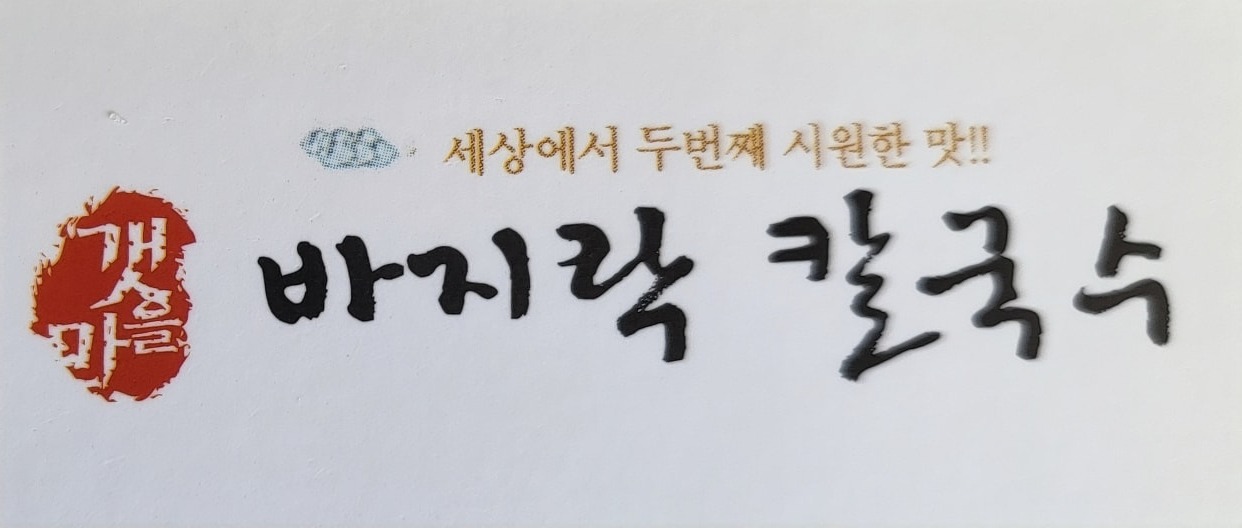 세상에서 두번째 시원한 맛!!
갯마을
바지락 칼국수